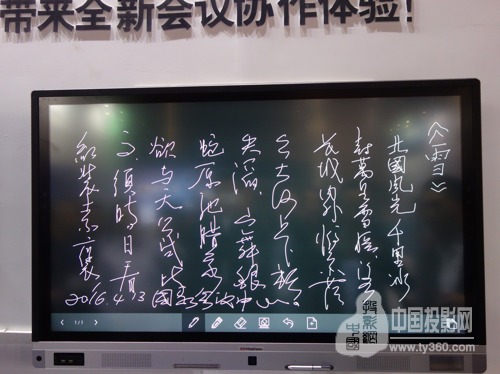 带来全新会议协作体验!
《雪》
北國風光 千里冰
封萬里雪飘 望
长城内外 惟余莽
大河上下 顿
失滔 山舞银
蛇原驰腊象
欲与天公试比
高须晴日看
红装素裹
2016.4.13 国家会议中心
1/1
中国投影网
www.ty360.com